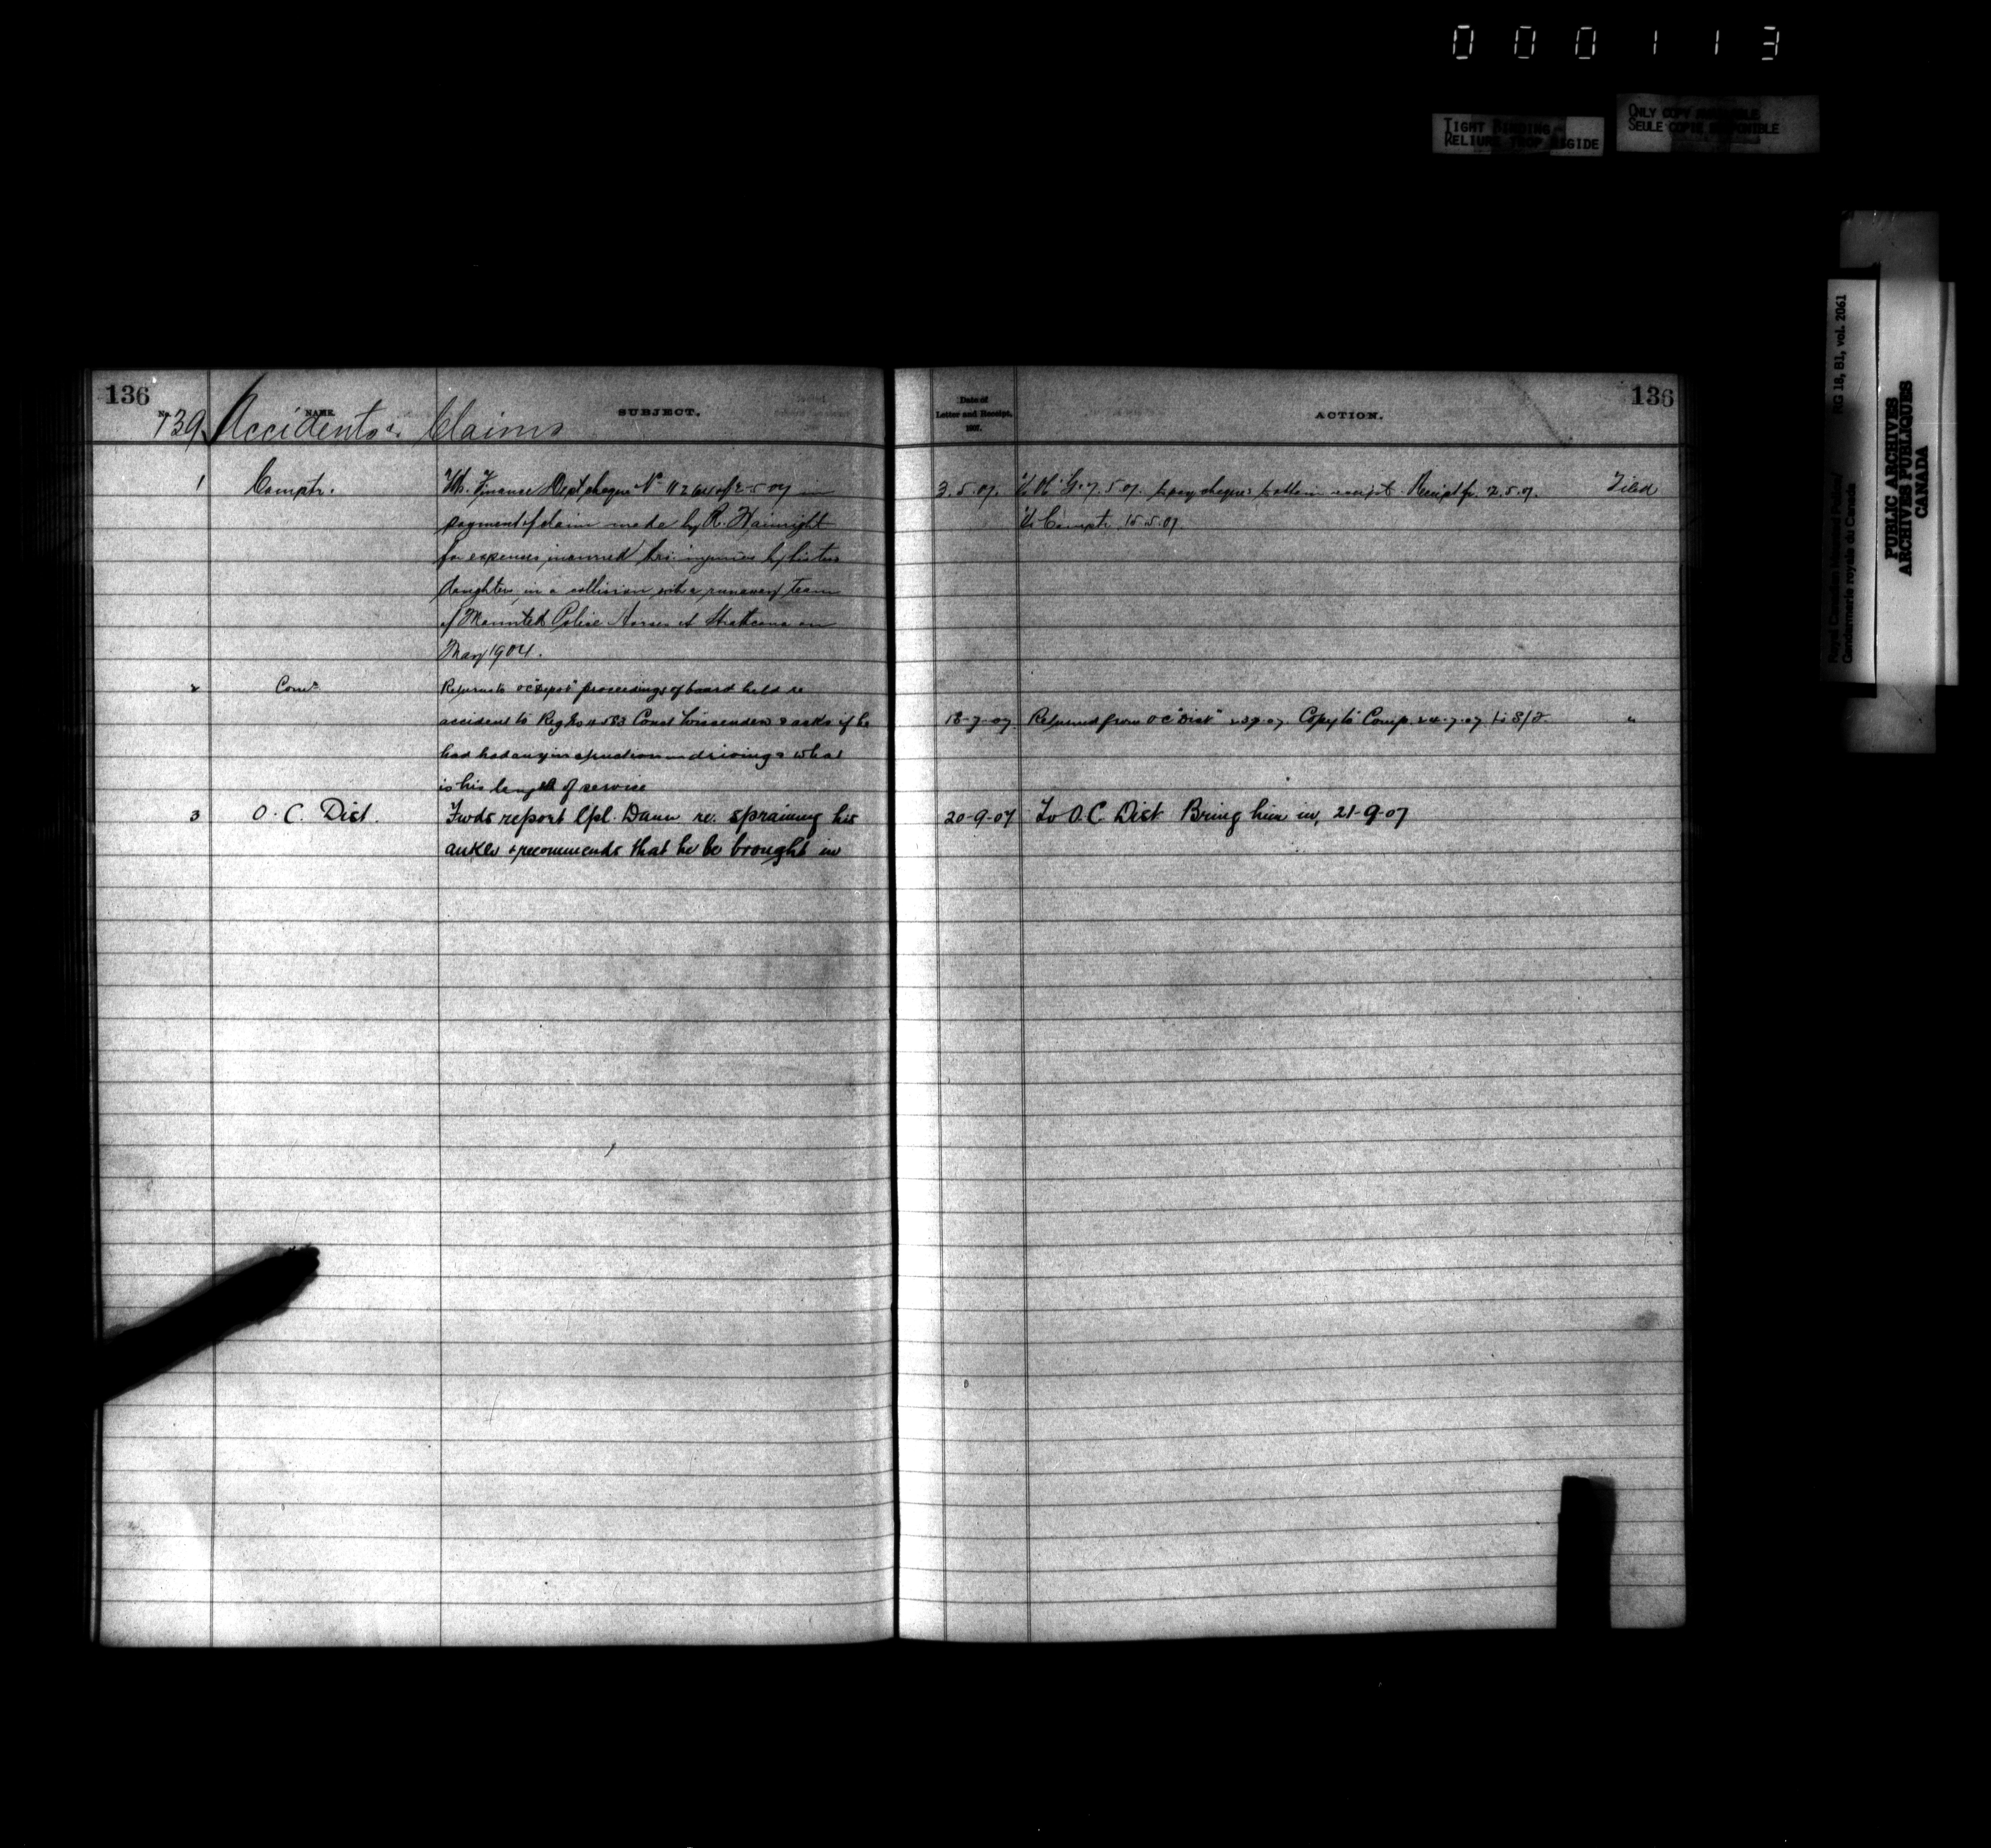 000113
TIGHT BINDING
RELIURE TROP RIGIDE
ONLY COPY AVAILABLE
SEULE COPIE DISPONIBLE
RG 18, B1, vol. 2061
Royal Canadian Mounted Police/
Gendarmerie royale du Canada
PUBLIC ARCHIVES
ARCHIVES PUBLIQUES
CANADA
136
No. NAME. SUBJECT.
139 Accidents & Claims
1 Comptr. Finance Dept cheque No in
payment of claim made by R. Wainright
for expenses incurred injuries by his two
daughters in a collision with a runaway team
of Mounted Police Horses at Strathcona on
May 1904.
2 Comr Returns to OC "Depot" proceedings of board held re
accident to Reg No 4583 Const & asks if he
had had any instruction in driving & what
is his length of service
3 O. C. Dist. Fwds report Cpl. Dann re. spraining his
ankle & recommends that he be brought in
136
Date of
Letter and Receipt.
1907.
ACTION.
3.5.07. 7.5.07. to pay cheque & obtain receipt Receipt fr. Filed
To Comptr. 15.5.07
18-7-07 Returned from OC "Dist" Copy to Comp. 24-7-07 "
20-9-07 To O.C. Dist Bring him in, 21-9-07